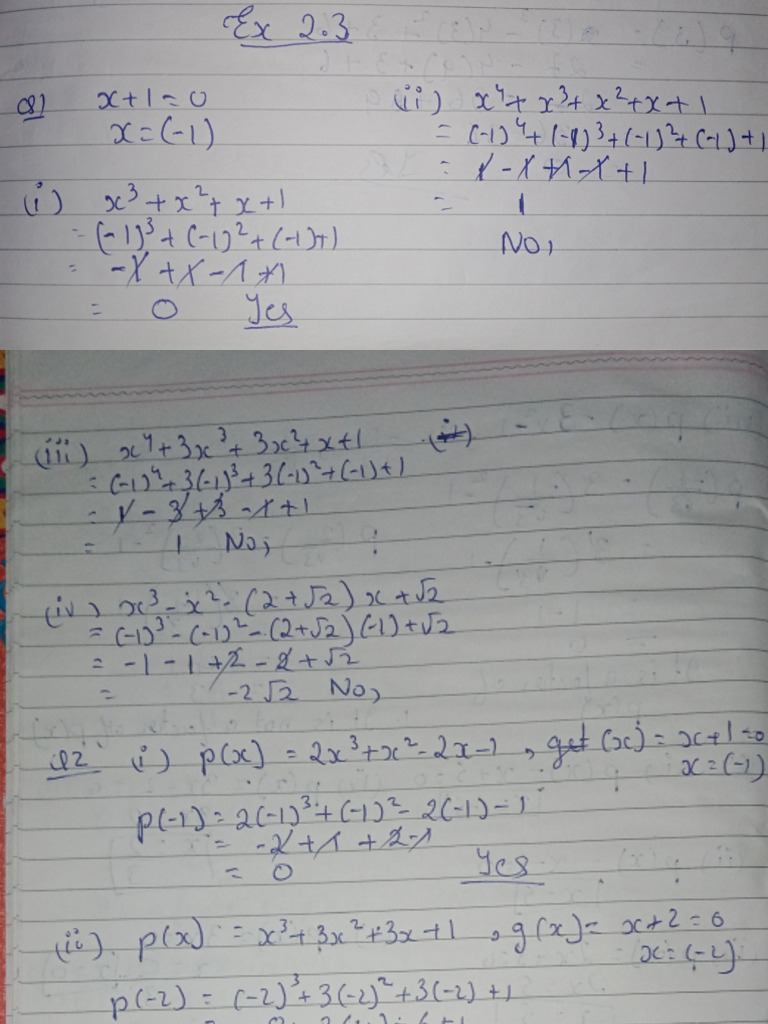 Ex 2.3
Q1 x+1=0
x=(-1)
(i) x³+x²+x+1
= (-1)³+(-1)²+(-1)+1
= -1+1-1+1
= 0 Yes
(ii) x⁴+x³+x²+x+1
= (-1)⁴+(-1)³+(-1)²+(-1)+1
= 1-1+1-1+1
= 1
No,
(iii) x⁴+3x³+3x²+x+1
= (-1)⁴+3(-1)³+3(-1)²+(-1)+1
= 1-3+3-1+1
= 1 No,
(iv) x³-x²-(2+√2)x+√2
= (-1)³-(-1)²-(2+√2)(-1)+√2
= -1-1+2-2+√2
= -2√2 No,
Q2 (i) p(x) = 2x³+x²-2x-1, g(x)=x+1=0
x=(-1)
p(-1) = 2(-1)³+(-1)²-2(-1)-1
= -2+1+2-1
= 0 Yes
(ii) p(x) = x³+3x²+3x+1, g(x)= x+2=0
x=(-2)
p(-2) = (-2)³+3(-2)²+3(-2)+1